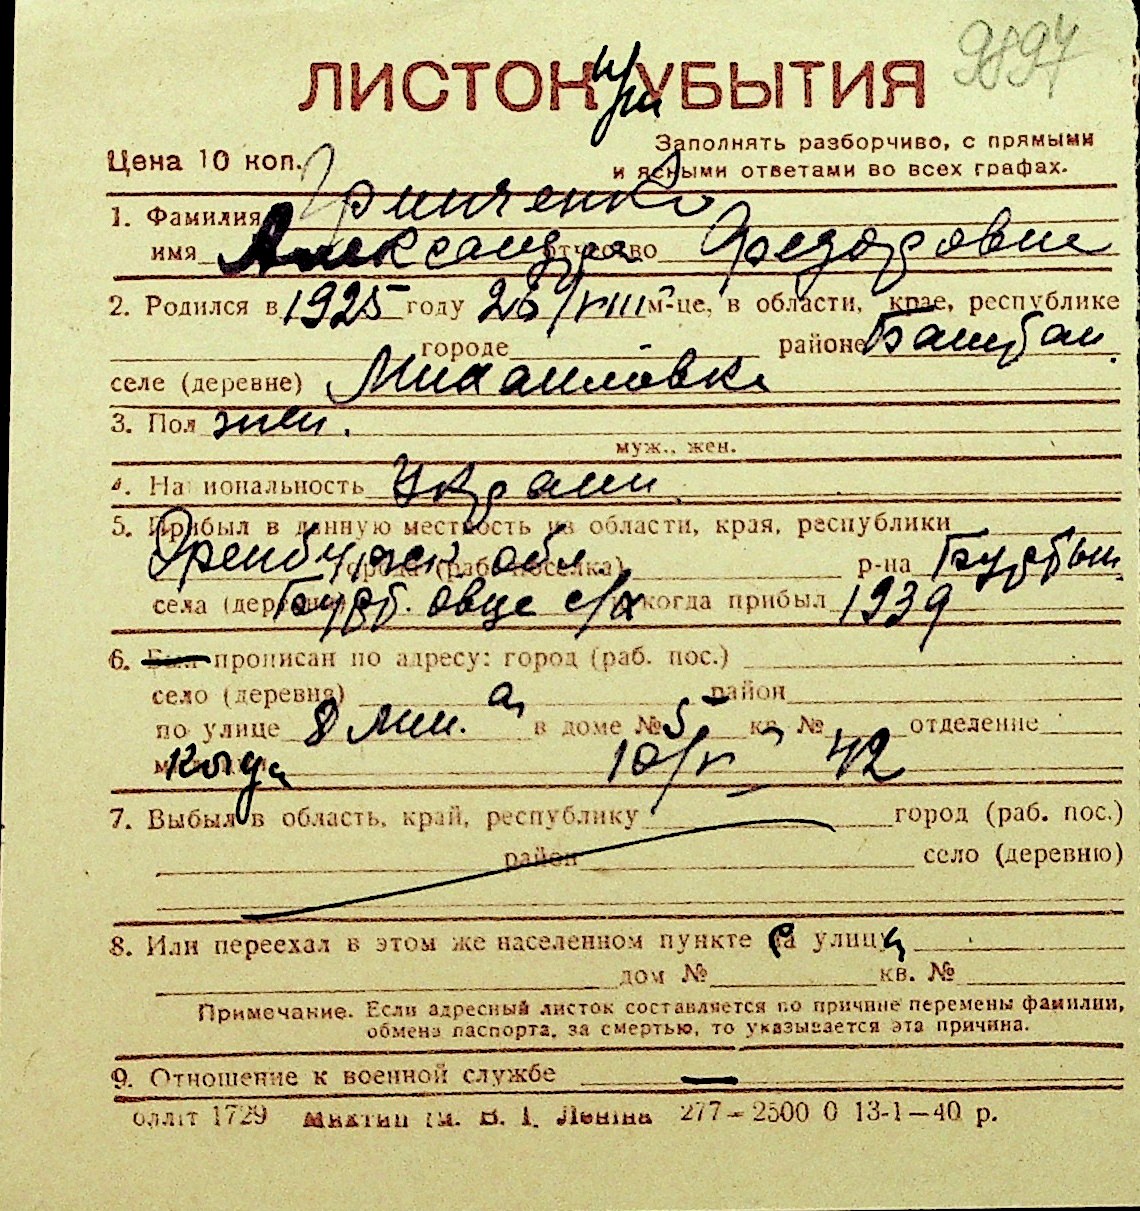 9897
ЛИСТОК УБЫТИЯ
при
Цена 10 коп.
Заполнять разборчиво, с прямыми
и ясными ответами во всех графах.
1. Фамилия Гринченко
имя Александра отчество Федоровна
2. Родился в 1925 году 26/VIII м-це, в области, крае, республике
городе районе Башбан
селе (деревне) Михайловка
3. Пол жен.
муж., жен.
4. Национальность Украин
5. Прибыл в данную местность из области, края, республики
Оренбургск. обл. города (раб. поселка) р-на Буртын
села (деревни) Бурт. овце с/х когда прибыл 1939
6. Был прописан по адресу: город (раб. пос.)
село (деревня) район
по улице 8 Мин. а, в доме № 5 кв. № отделение
Когда 10/V 42
7. Выбыл в область, край, республику город (раб. пос.)
район село (деревню)
8. Или переехал в этом же населенном пункте с улицы
дом № кв. №
Примечание. Если адресный листок составляется по причине перемены фамилии,
обмена паспорта, за смертью, то указывается эта причина.
9. Отношение к военной службе —
олліт 1729 В. І. Леніна 277–2500 0 13-1–40 р.